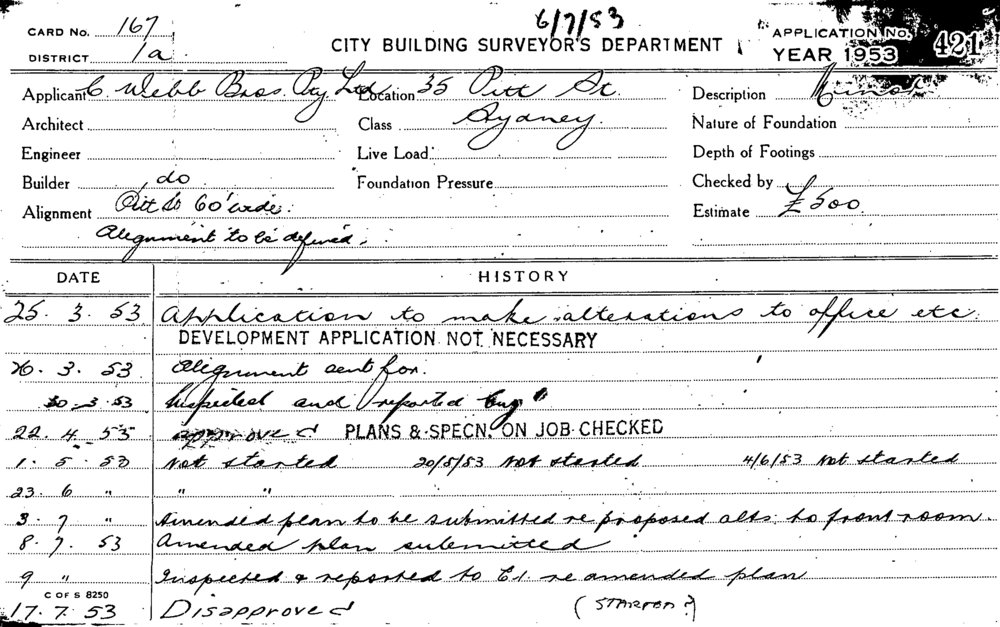 6/7/53
CARD No. 167
DISTRICT 1a
CITY BUILDING SURVEYOR'S DEPARTMENT
APPLICATION No. 421
YEAR 1953
Applicant C Webb Bros. Pty Ltd Location 35 Pitt St. Description Minor
Architect Class Sydney. Nature of Foundation
Engineer Live Load Depth of Footings
Builder do Foundation Pressure Checked by
Alignment Pitt St 60' wide. Estimate £500
Alignment to be defined.
DATE HISTORY
25. 3. 53 Application to make alterations to office etc
DEVELOPMENT APPLICATION NOT NECESSARY
26. 3. 53 Alignment sent for.
30. 3. 53 Inspected and reported
22. 4. 53 approved PLANS & SPECN. ON JOB CHECKED
1. 5. 53 Not started 20/5/53 Not started 4/6/53 Not started
23. 6 " " "
3. 7 " Amended plan to be submitted re proposed alts. to front room.
8. 7. 53 Amended plan submitted
9 " Inspected & reported to re amended plan
C OF S 8250
17. 7. 53 Disapproved (STARTED?)